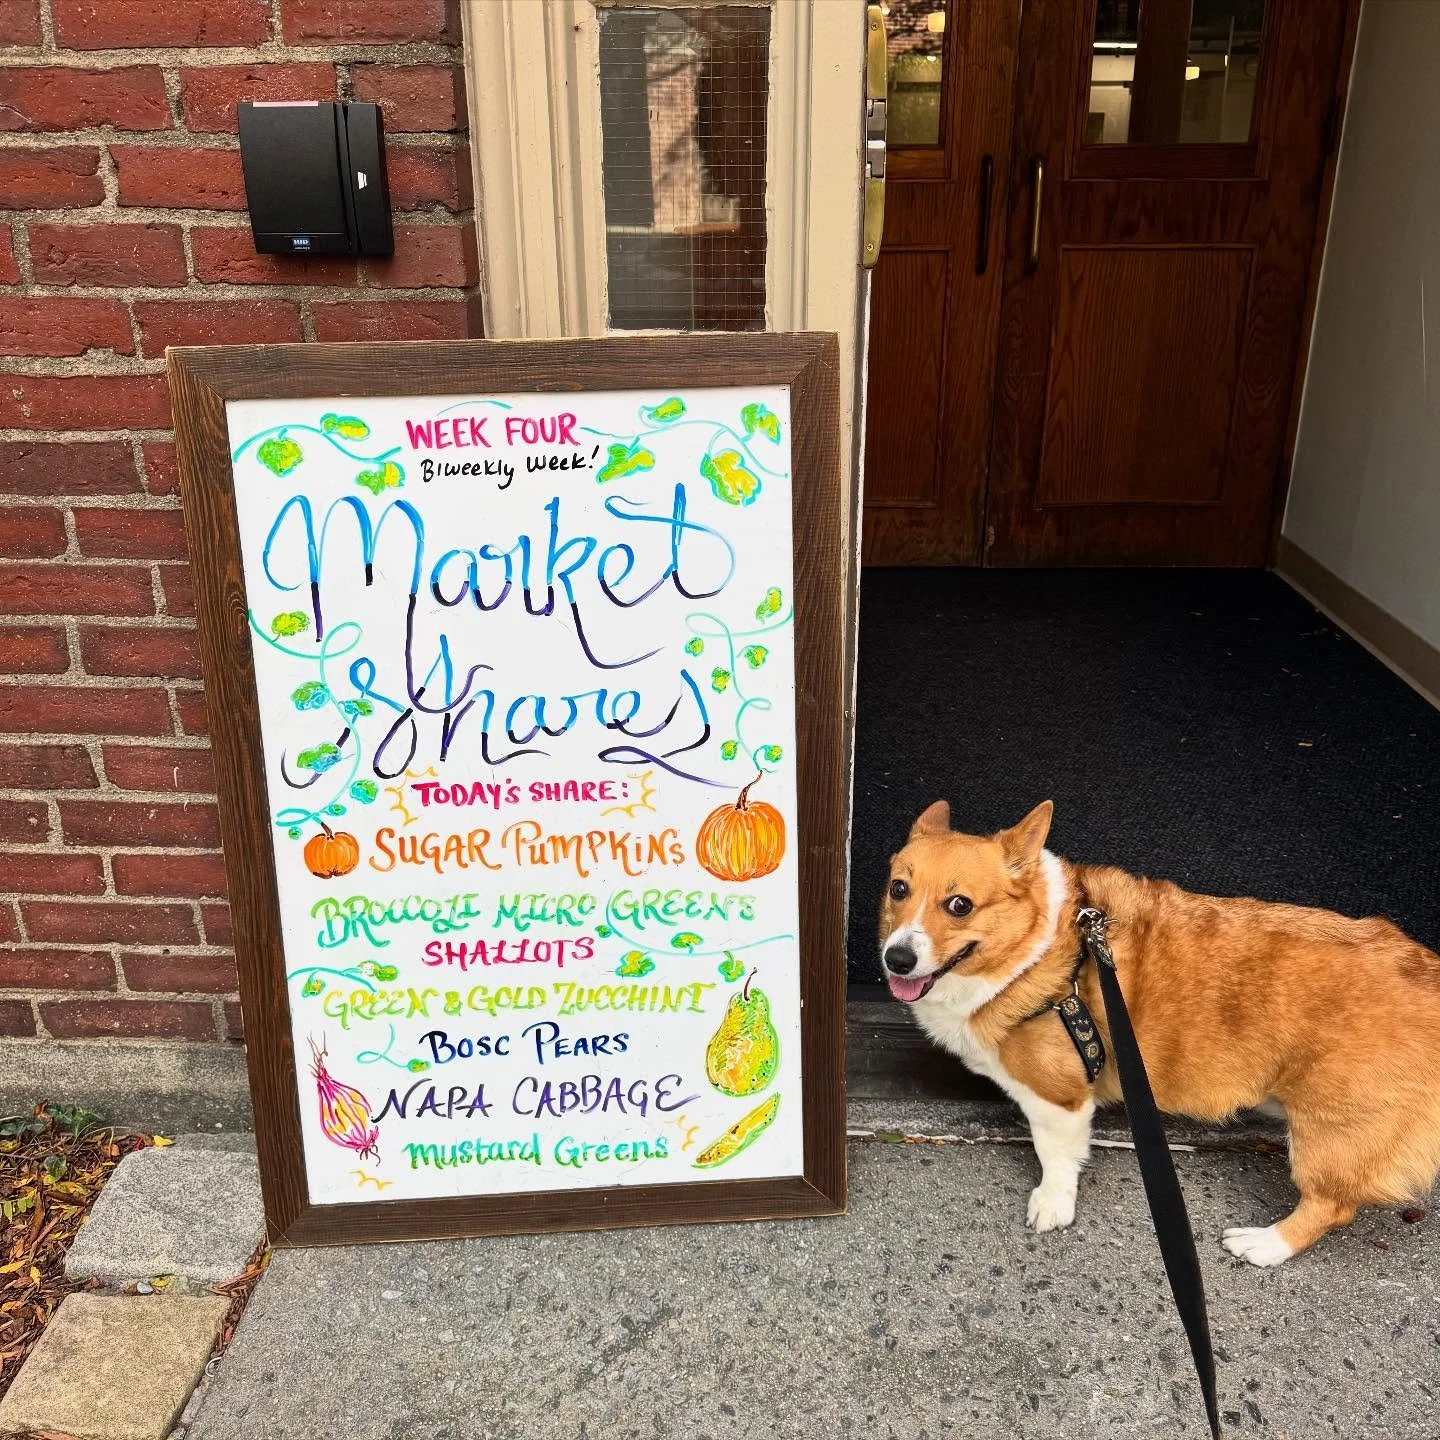 HID
WEEK FOUR
Biweekly Week!
Market
Shares
TODAY'S SHARE:
SUGAR PUMPKINS
BROCCOLI MICRO GREENS
SHALLOTS
GREEN & GOLD ZUCCHINI
BOSC PEARS
NAPA CABBAGE
Mustard Greens